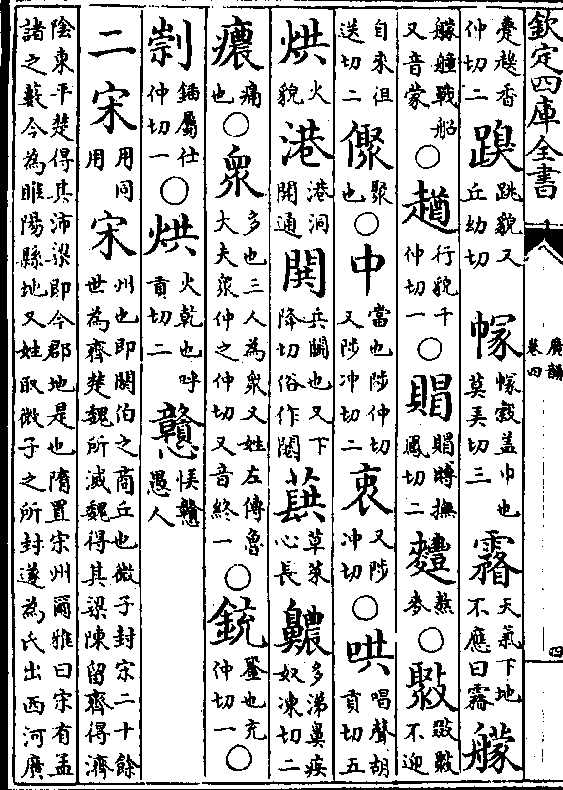 欽定四庫全書
廣韻
卷四
四
香仲切二 䠗跳貌又丘幼切 幪幪縠蓋巾也莫弄切三 霿天氣下地不應曰霿 艨
艨艟戰船又音蒙 ○ 趥行貌千仲切一 ○ 賵賵賻撫鳳切二 麷熬麥 ○ 不迎
自來徂送切二 聚也 ○ 中當也陟仲切又陟冲切二 衷又陟冲切 ○ 哄唱聲胡貢切五
烘火貌 港港洞開通 鬨兵鬭也又下降切俗作閧 蕻草菜心長 齈多涕鼻疾奴凍切二
癑痛也 ○ 眾多也三人為眾又姓左傳魯大夫眾仲之仲切又音終一 ○ 銃銎也充仲切一 ○
剬鍤屬仕仲切一 ○ 烘火乾也呼貢切二 戇悮戇愚人
二宋用同用 宋州也即閼伯之商丘也微子封宋二十餘世為齊楚魏所滅魏得其梁陳留齊得濟
陰東平楚得其沛梁即今郡地是也隋置宋州爾雅曰宋有孟諸之藪今為睢陽縣地又姓取微子之所封遂為氏出西河廣